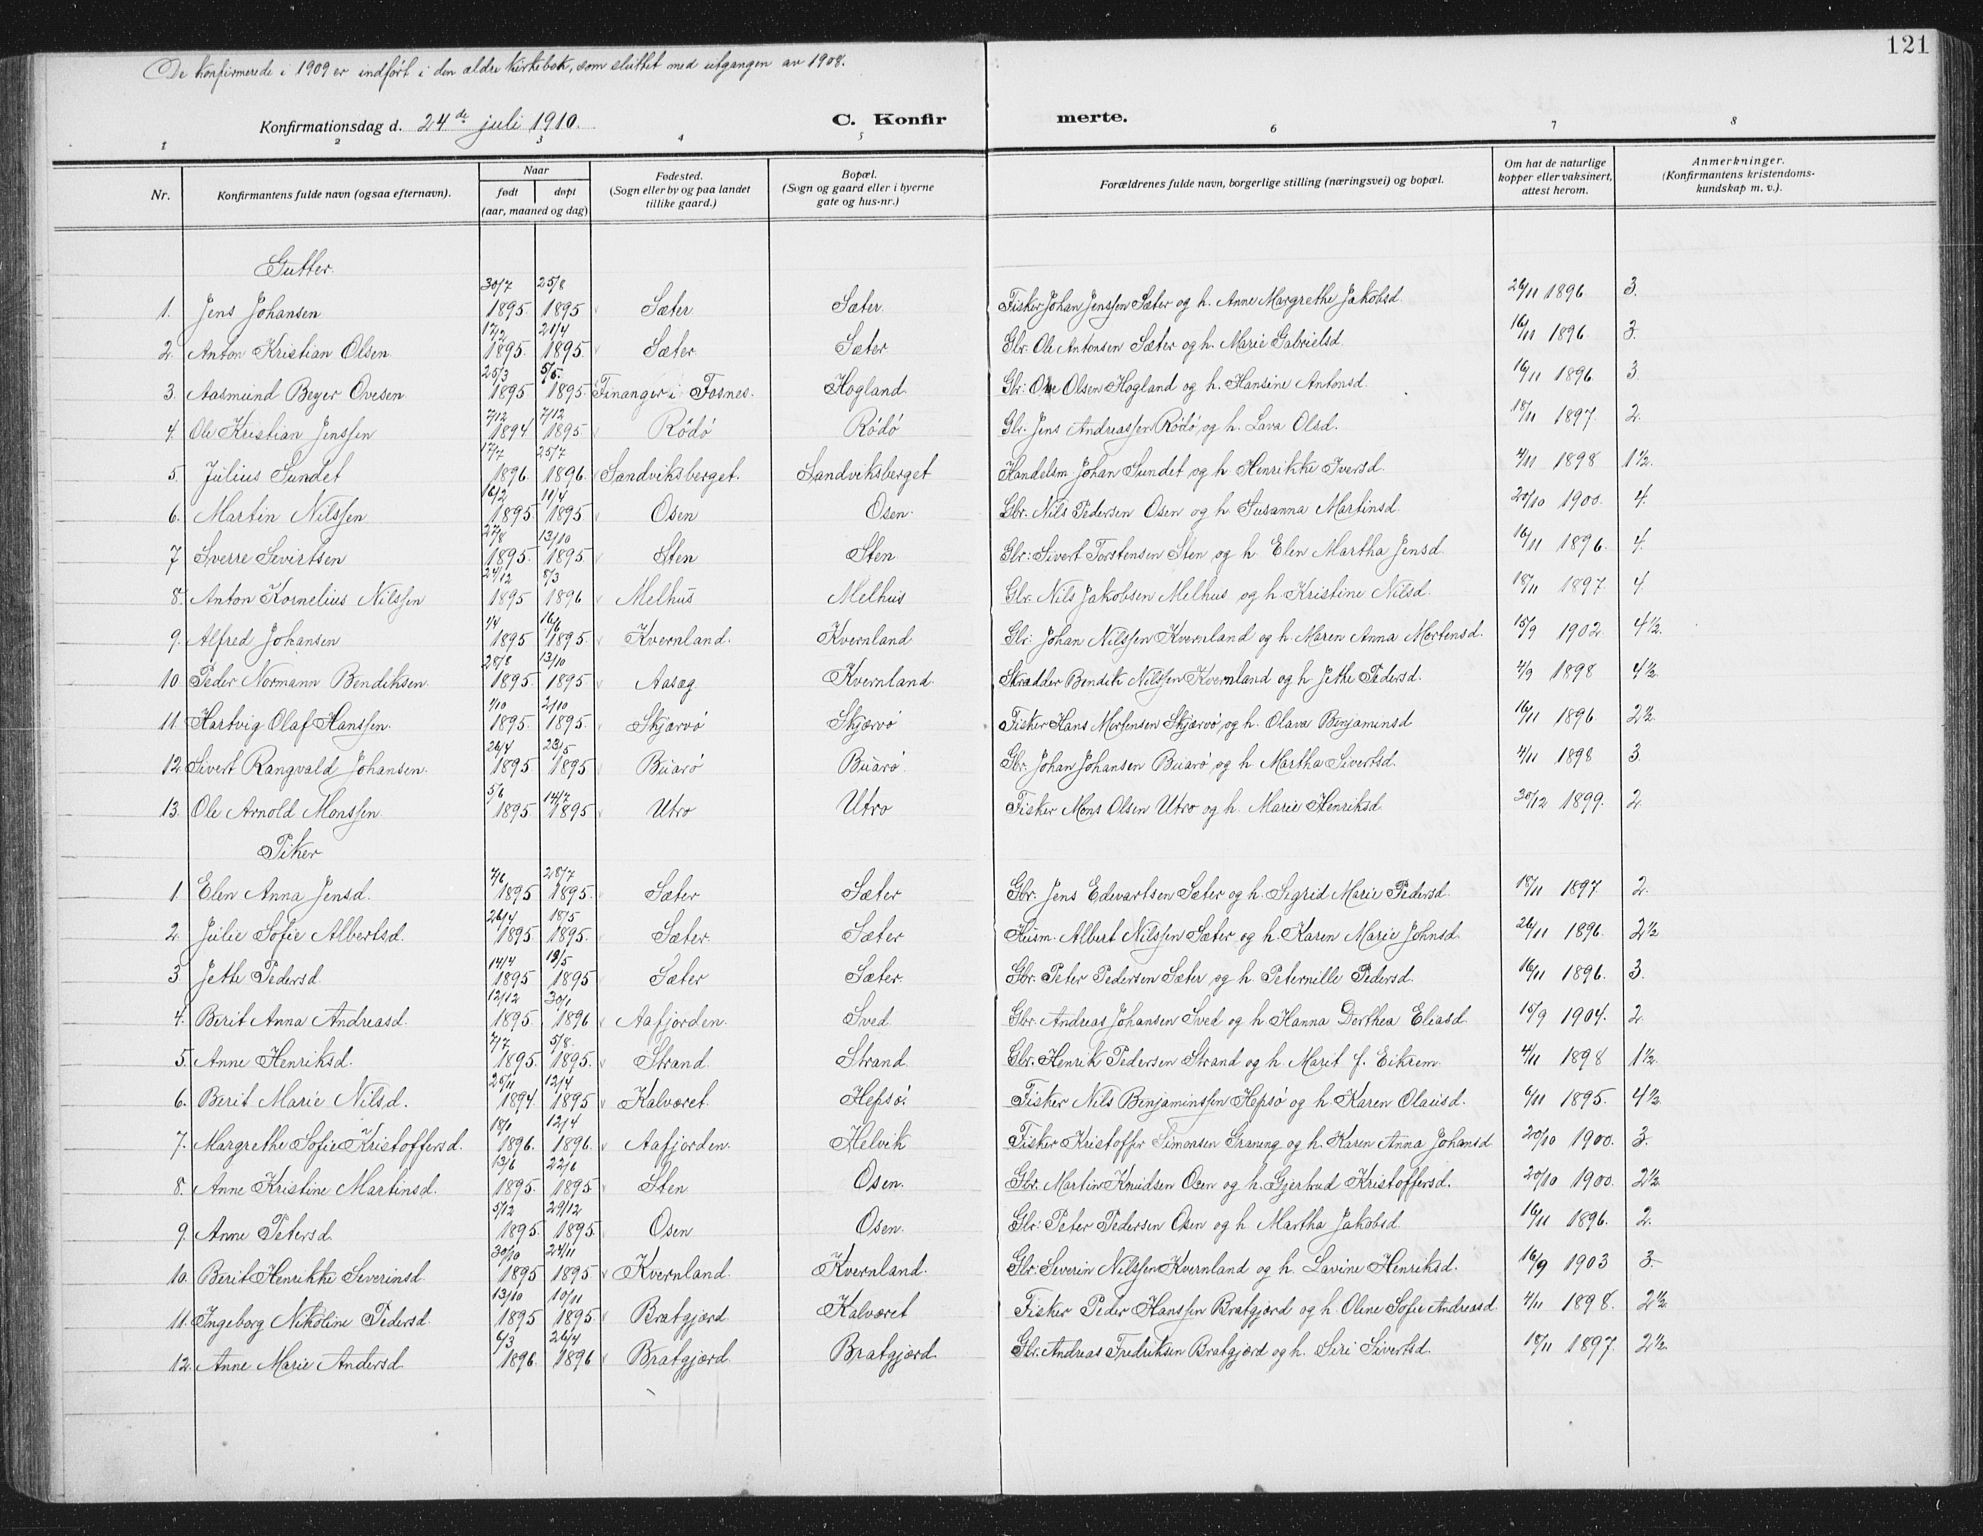 121
De konfirmerede i 1909 er indført i den ældre kirkebok, som sluttet med utgangen av 1908.
Konfirmationsdag d. 24de juli 1910. C. Konfirmerte.
1 2 3 4 5 6 7 8
Nr. Konfirmantens fulde navn (ogsaa efternavn). Naar født døpt (aar, maaned og dag) Fødested. (Sogn eller by og paa landet tillike gaard.) Bopæl. (Sogn og gaard eller i byerne gate og hus-nr.) Forældrenes fulde navn, borgerlige stilling (næringsvei) og bopæl. Om hat de naturlige kopper eller vaksinert, attest herom. Anmerkninger. (Konfirmantens kristendomskundskap m. v.).
Gutter.
1. Jens Johansen 30/7 1895 25/8 1895 Sæter Sæter. Fisker Johan Jenssen Sæter og h. Anne Margrethe Jakobsd. 26/11 1896 3.
2. Anton Kristian Olsen 17/2 1895. 21/4 1895. Sæter. Sæter Gbr. Ole Antonsen Sæter og h. Marie Gabrielsd. 16/11 1896 3.
3. Aasmund Beyer Ovesen 25/3 1895 5/5. 1895. Finanger i Fosnes. Hogland. Gbr: Ove Olsen Hogland og h. Hansine Antonsd. 16/11 1896 3.
4. Ole Kristian Jenssen 7/12 1894. 7/12 1895 Rödö Rödö Gbr. Jens Andreassen Rödö, og h. Lava Olsd. 18/11 1897. 2.
5. Julius Sundet 17/7 1896. 25/7 1896. Sandviksberget. Sandviksberget Handelsm. Johan Sundet og h. Henrikke Iversd. 4/11 1898 1½.
6. Martin Nilssen 16/2 1895. 11/4 1895 Osen Osen. Gbr. Nils Pedersen Osen og h. Susanna Martinsd. 20/10 1900. 4.
7 Sverre Sevirtsen 27/8 1895 13/10 1895. Sten Sten Gbr: Sivert Torstensen Sten og h. Elen Martha Jensd. 16/11 1896. 4.
8. Anton Kornelius Nilssen 24/12 1895 8/3 1896 Melhus Melhus Gbr. Nils Jakobsen Melhus og h. Kristine Nilsd. 18/11 1897. 4
9. Alfred Johansen 1/4 1895 16/6 1895. Kvernland. Kvernland Gbr: Johan Nilssen Kvernland og h. Maren Anna Mortensd. 15/9 1902. 4½.
10 Peder Normann Bendiksen 28/8 1895. 13/10 1895 Aasæg Kvernland. Skrædder Bendik Nilssen Kvernland og h Jethe Pedersd. 2/9 1898 4½.
11. Hartvig Olaf Hanssen. 1/10 1895 2/10 1895. Skjærvö Skjærvö Fisker Hans Mortensen Skjærvö, og h. Olava Benjaminsd 16/11 1896. 2½
12 Sivert Rangvald Johansen. 26/4 1895 23/5 1895 Buarö Buarö. Gbr. Johan Johansen Buarö og h. Martha Sivertsd. 4/11 1898 3.
13. Ole Arnold Monssen 5/6 1895. 14/7 1895 Utro Utro Fisker Mons Olsen Utro og h. Marie Henriksd. 30/12 1899. 2.
Piker
1. Elen Anna Jensd. 7/6 1895. 28/7 1895. Sæter Sæter Gbr. Jens Edevartsen Sæter og h. Sigrid Marie Pedersd. 18/11 1897. 2.
2. Julie Sofie Albertsd. 26/4 1895. 18/5 1895. Sæter. Sæter Husm. Albert Nilssen Sæter og h. Karen Marie Johnsd. 26/11 1896. 2½
3 Jethe Pedersd. 14/4 1895 13/5 1895 Sæter Sæter. Gbr. Peter Pedersen Sæter og h. Peternille Pedersd. 16/11 1896. 3.
4. Berit Anna Andreasd. 12/12 1895. 30/1 1896 Aafjorden. Sved Gbr. Andreas Johansen Sved og h. Hanna Dorthea Eliasd. 15/9 1904. 2.
5. Anne Henriksd. 7/7 1895. 5/8. 1895. Strand. Strand. Gbr. Henrik Pedersen Strand og h. Marit f. Eikrem. 4/11 1898 1½.
6. Berit Marie Nilsd. 25/11 1894 12/4 1895 Kalværet. Hepsö. Fisker Nils Benjaminssen Hepsö og h. Karen Olausd. 6/11 1895. 4½.
7. Margrethe Sofie Kristoffersd. 18/1 1896. 12/4 1896. Aafjorden. Helvik Fisker Kristoffer Simonsen Graning og h. Karen Anna Johansd 20/10 1900. 3.
8. Anne Kristine Martinsd. 13/6 1895. 22/6 1895 Sten Osen. Gbr. Martin Knudsen Osen og h. Gjertrud Kristoffersd. 20/10 1900. 2½.
9. Anne Petersd. 5/12 1895. 29/12 1895. Osen Osen. Gbr: Peter Pedersen Osen og h. Martha Jakobsd. 16/11 1896. 2.
10. Berit Henrikke Severinsd. 30/10 1895 24/11 1895 Kvernland. Kvernland. Gbr. Severin Nilssen Kvernland og h. Lavine Henriksd. 16/9 1903 3.
11. Ingeborg Nikoline Pedersd 13/10 1895 10/11 1895. Bratgjærd Kalværet Fisker Peder Hanssen Bratgjærd og h. Oline Sofie Andreasd 4/11 1898. 2½.
12. Anne Marie Andersd. 6/3 1896. 26/4 1896 Bratgjærd. Bratgjærd Gbr. Andreas Fredriksen Bratgjærd og h. Siri Sivertsd. 18/11 1897. 2½.